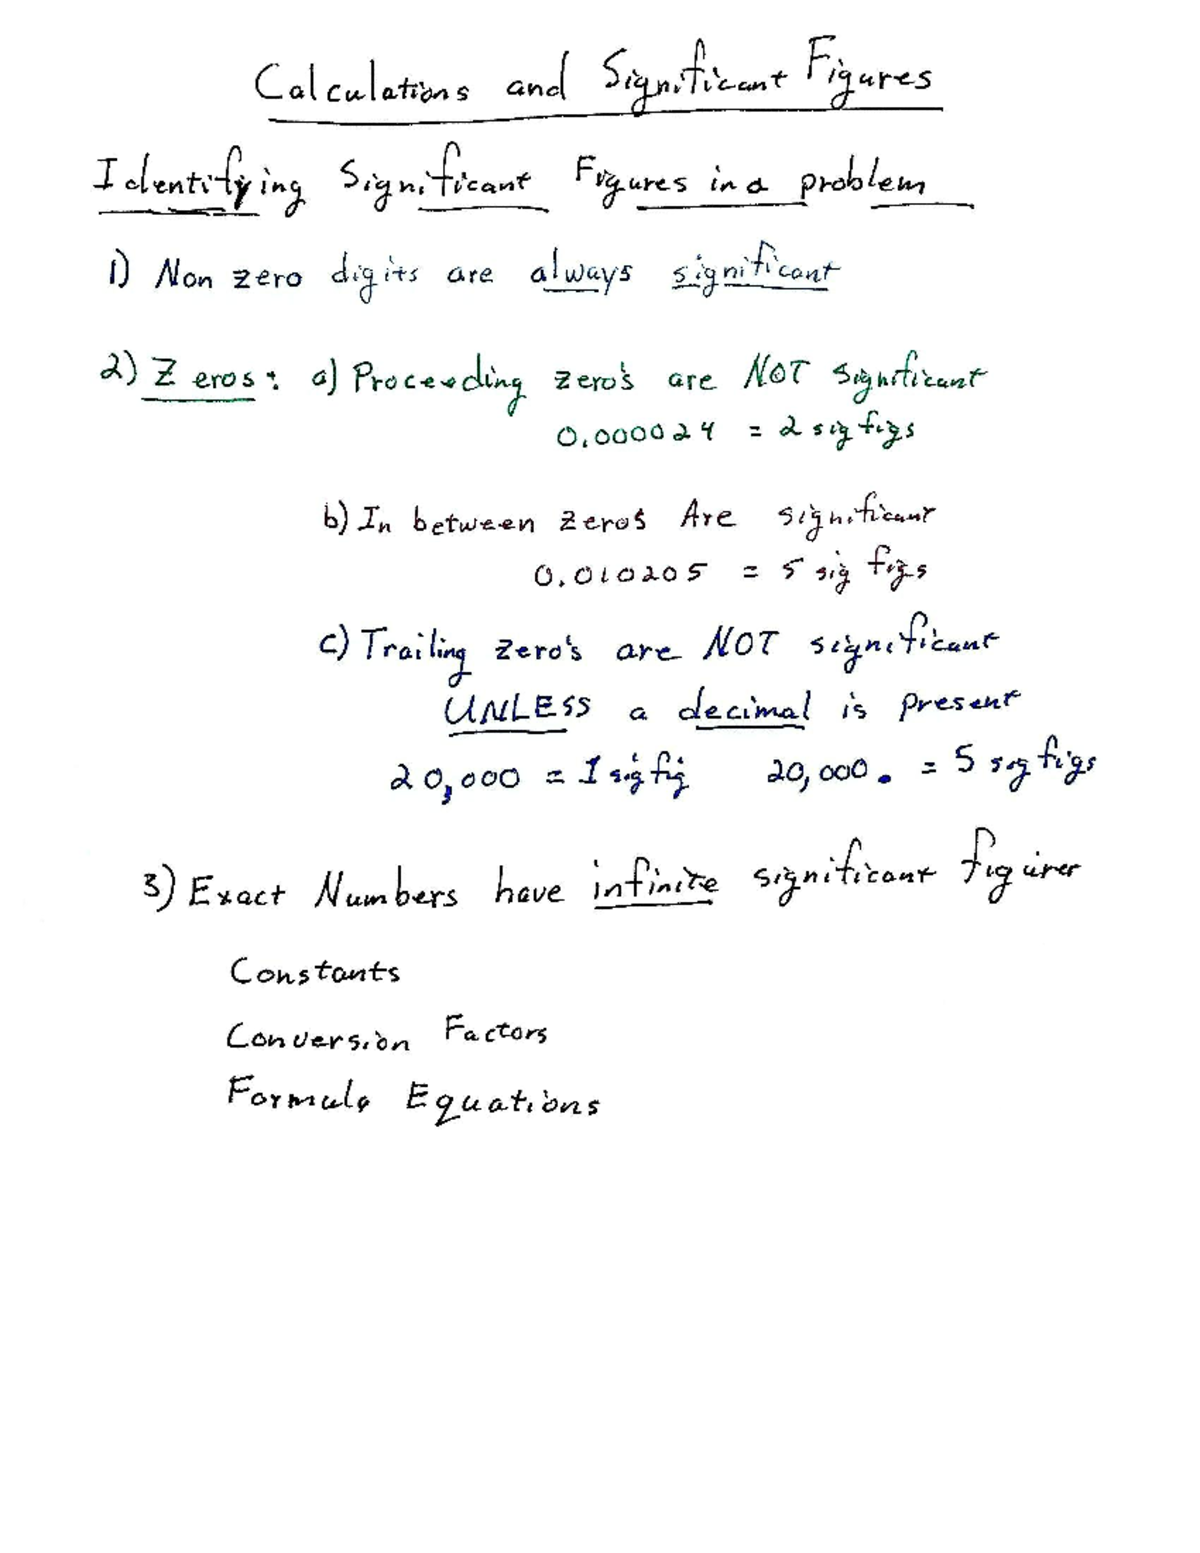 Calculations and Significant Figures
Identifying Significant Figures in a problem
1) Non zero digits are always significant
2) Zeros: a) Proceeding zero's are NOT significant
0.000024 = 2 sig figs
b) In between zeros Are significant
0.010205 = 5 sig figs
c) Trailing zero's are NOT significant
UNLESS a decimal is present
20,000 = 1 sig fig 20,000. = 5 sig figs
3) Exact Numbers have infinite significant figures
Constants
Conversion Factors
Formula Equations